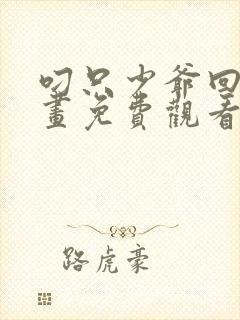 叼只少爷回
畫免費觀看
路虎豪